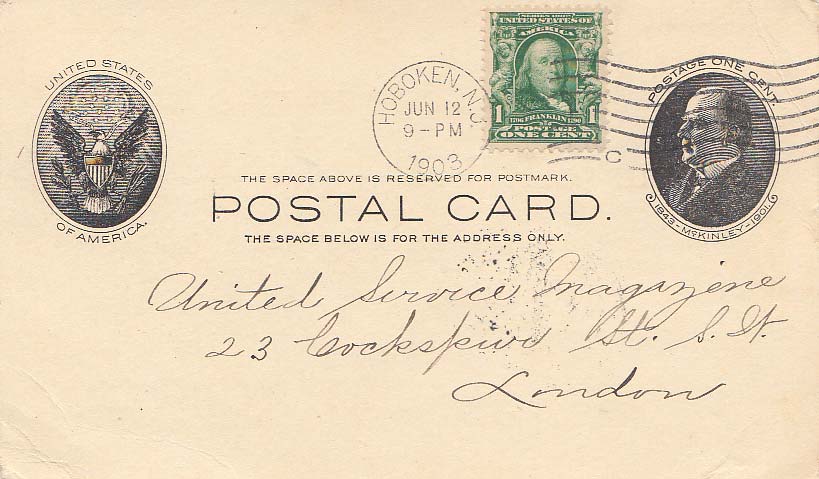 SERIES 1902
UNITED STATES OF AMERICA
1 1706 FRANKLIN 1790 1
POSTAGE
ONE CENT
HOBOKEN, N.J.
JUN 12
9-PM
1903
C
UNITED STATES
OF AMERICA.
POSTAGE ONE CENT.
1843-McKINLEY-1901.
THE SPACE ABOVE IS RESERVED FOR POSTMARK.
POSTAL CARD.
THE SPACE BELOW IS FOR THE ADDRESS ONLY.
United Service Magazine
23 Cockspur St. S.W.
London